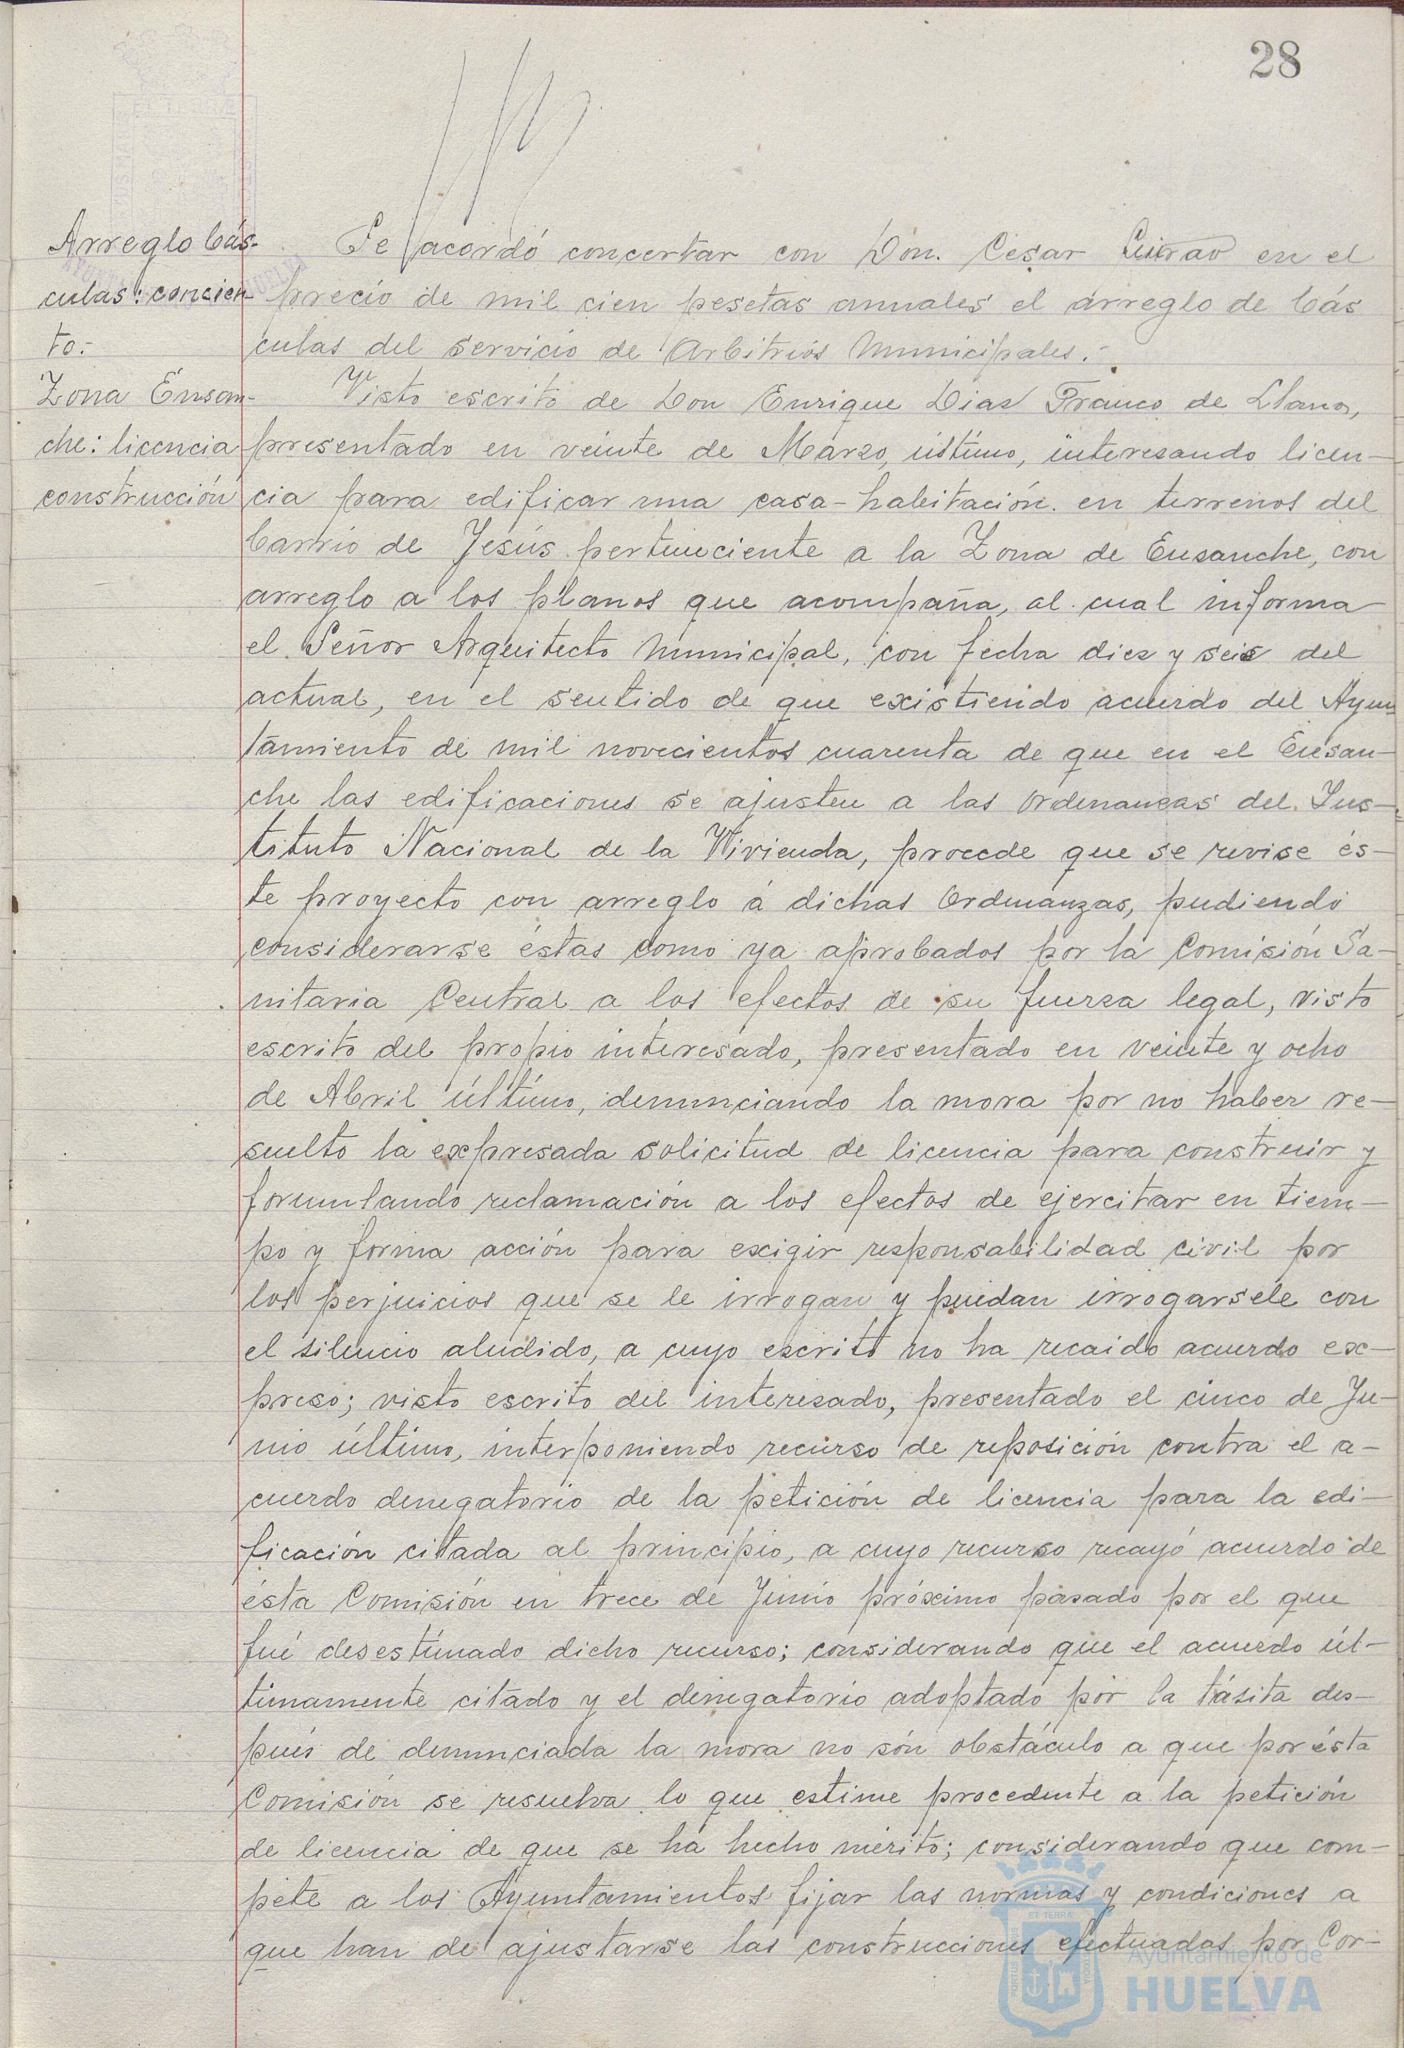 28
Arreglo bás-
culas: concier-
to.-
Se acordó concertar con Don. Cesar en el
precio de mil cien pesetas anuales el arreglo de bás
culas del servicio de Arbitrios Municipales.-
Zona Ensan-
che: licencia
construcción
Visto escrito de Don Enrique Dias Franco de Llanos,
presentado en veinte de Marzo, último, interesando licen-
cia para edificar una casa-habitación. en terrenos del
barrio de Jesús perteneciente a la Zona de Ensanche, con
arreglo a los planos que acompaña, al cual informa
el Señor Arquitecto Municipal, con fecha diez y seis del
actual, en el sentido de que existiendo acuerdo del Ayun
tamiento de mil novecientos cuarenta de que en el Ensan-
che las edificaciones se ajusten a las Ordenanzas del Ins-
tituto Nacional de la Vivienda, procede que se revise és-
te proyecto con arreglo á dichas Ordenanzas, pudiendo
considerarse éstas como ya aprobados por la Comisión Sa-
nitaria Central a los efectos de su fuerza legal, visto
escrito del propio interesado, presentado en veinte y ocho
de Abril último, denunciando la mora por no haber re-
suelto la expresada solicitud de licencia para construir y
formulando reclamación a los efectos de ejercitar en tiem-
po y forma acción para exigir responsabilidad civil por
los perjuicios que se le irrogan y puedan irrogarsele con
el silencio aludido, a cuyo escrito no ha recaido acuerdo ex-
preso; visto escrito del interesado, presentado el cinco de Ju-
nio último, interponiendo recurso de reposición contra el a-
cuerdo denegatorio de la petición de licencia para la edi-
ficación citada al principio, a cuyo recurso recayó acuerdo de
ésta Comisión en trece de Junio próximo pasado por el que
fué desestimado dicho recurso; considerando que el acuerdo úl-
timamente citado y el denegatorio adoptado por la tásita des-
pués de denunciada la mora no són obstáculo a que por ésta
Comisión se resuelva lo que estime procedente a la petición
de licencia de que se ha hecho mérito; considerando que com-
pete a los Ayuntamientos fijar las normas y condiciones a
que han de ajustarse las construcciones efectuadas por Cor-
Ayuntamiento de
HUELVA